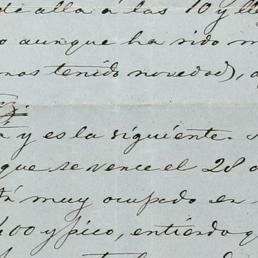 de alla á las 10 y
o aunque ha sido m
nos tenido novedad),
a y es la siguiente.
que se vence el 28 d
tá muy ocupado en
400 y pico, entiendo q